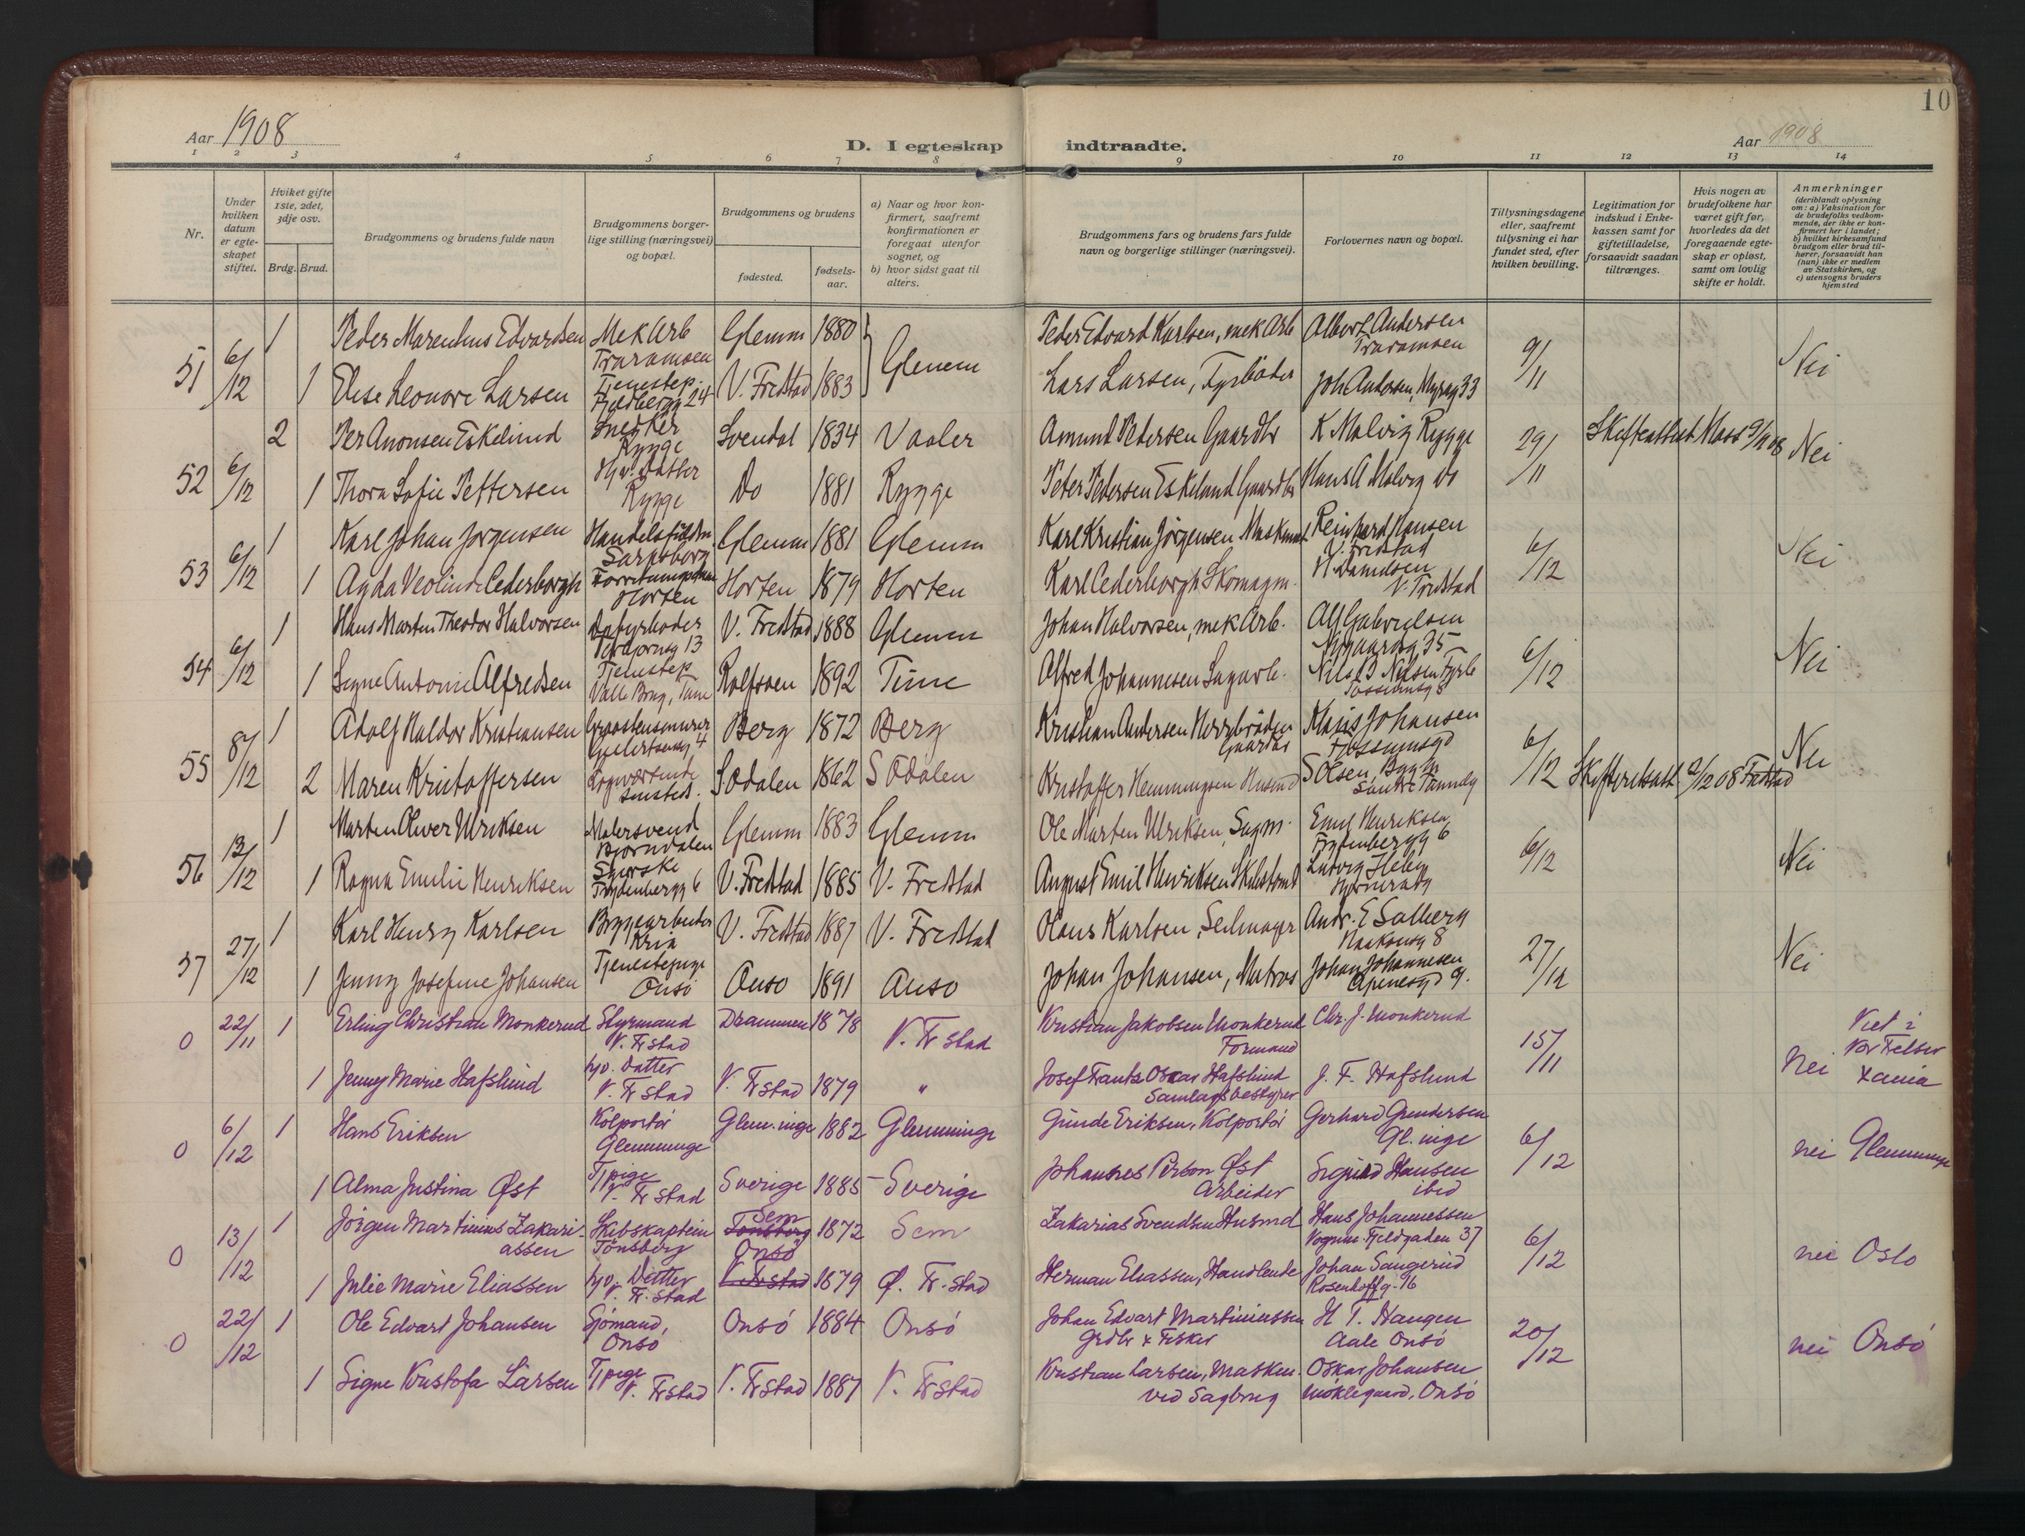 10
Aar 1908
D. I egteskap indtraadte.
Aar 1908
1 2 3 4 5 6 7 8 9 10 11 12 13 14
Nr.
Under hvilken datum er egteskapet stiftet.
Hviket gifte 1ste, 2det, 3dje osv.
Brdg. Brud.
Brudgommens og brudens fulde navn
Brudgommens borgerlige stilling (næringsvei) og bopæl.
Brudgommens og brudens
fødested.
fødselsaar.
a) Naar og hvor konfirmert, saafremt konfirmationen er foregaat utenfor sognet, og
b) hvor sidst gaat til alters.
Brudgommens fars og brudens fars fulde navn og borgerlige stillinger (næringsvei).
Forlovernes navn og bopæl.
Tillysningsdagene eller, saafremt tillysning ei har fundet sted, efter hvilken bevilling.
Legitimation for indskud i Enkekassen samt for giftetilladelse, forsaavidt saadan tiltrænges.
Hvis nogen av brudefolkene har været gift før, hvorledes da det foregaaende egteskap er opløst, samt om lovlig skifte er holdt.
Anmerkninger
(deriblandt oplysning om: a) Vaksination for de brudefolks vedkommende, der ikke er konfirmert her i landet; b) hvilket kirkesamfund brudgom eller brud tilhører, forsaavidt han (hun) ikke er medlem av Statskirken, og c) utensogns bruders hjemsted
51 6/12 1 Peder Marenius Edvardsen Mek Arb Glemm 1880 Glemm Peder Edvard Karlsen, mek Arb Albert Andersen 9/11 Nei
Traraveien
1 Elise Leonore Larsen Tjenestep. Fjeldbergg 24 V. Fredstad 1883 Lars Larsen, Fyrbøder Joh Andersen, Myrag 33
52 6/12 2 Per Amonsen Eskelund Snedker Rygge Svendal 1834 Vaaler Amund Petersen Gaardbr K Malvig Rygge 29/11 Skifteattest Moss 9/11 08 Nei
1 Thora Sofie Pettersen Hjv. Datter Rygge Do 1881 Rygge Peter Pedersen Eskelund Gaardbr Hans A Malvig Do
53 6/12 1 Karl Johan Jørgensen Sarpsborg Glemm 1881 Glemm Karl Kristian Jørgensen Reinhard Hansen V. Fredstad 6/12 Nei
1 Agda Cederborgh Horten Horten 1879 Horten Karl Cederborgh Skomagm. H. Danielsen V. Fredstad
54 6/12 1 Hans Marten Theodor Halvorsen V. Fredstad 1888 Glemm Johan Halvorsen, mek Arb. Alf Gabrielsen Nygaardsg 35 6/12 Nei
1 Signe Antonie Alfredsen Tjenestep Valle Brug, Tune Rolfsøen 1892 Tune Alfred Johannesen Sagarb. Nils B Nilsen Fyrb
55 8/12 1 Adolf Haldor Kristiansen Berg 1872 Berg Kristian Andersen Gaardbr Klaus Johansen 6/12 Nei
2 Maren Kristoffersen Logværtinde Smsteds. S Ødalen 1862 S Ødalen Kristoffer Hemmingsen Husmd S Olsen, Bygm Skifteretsatt 2/12 08 Fredstad
56 13/12 1 Marten Oliver Ulriksen Malersvend Bjørndalen Glemm 1883 Glemm Ole Marten Ulriksen, Sagm. Emil Henriksen Frydenbergg 6 6/12 Nei
1 Ragna Emilie Henriksen Syerske Frydenbergg 6 V. Fredstad 1885 V. Fredstad August Emil Henriksen Ludvig
57 27/12 1 Karl Henry Karlsen Bryggearbeider Kria V. Fredstad 1887 V. Fredstad Olaus Karlsen, Seilmager Andr. E Solberg Haakonsg 8 27/12 Nei
1 Jenny Josefine Johansen Tjenestepige Onsø Onsø 1891 Onsø Johan Johansen, Matros Johan Johannesen 9.
0 22/11 1 Erling Christian Monkerud Styrmand V. Fr stad Drammen 1878 V. Fr stad Kristian Jakobsen Monkerud Formand Chr. J. Monkerud 15/11 nei Viet i Vor Frelser Xania
1 Jenny Marie Hafslund hjv. Datter V. Fr stad V. Fr stad 1879 " Josef Frantz Oscar Hafslund Samlagsbestyrer J. F. Hafslund
0 6/12 1 Hans Eriksen Kolportør Glemminge Glem.inge 1882 Glemminge Gunde Eriksen, Kolportør Gerhard Gundersen Gl. inge 6/12 nei Glemminge
1 Alma Justina Øst Tj pige V. Fr stad Sverige 1885 – Sverige Johannes Person Øst Arbeider Sigurd Hansen ibid
0 13/12 1 Jörgen Martinius Zakariassen Skibskaptein Tönsberg Sem Tönsberg 1872 Sem Zakarias Svendsen Husmd Hans Johannessen Vognm. Fjeldgaden 37 6/12 nei Oslo
1 Julie Marie Eliassen hjv. Datter V. Fr. stad Onsö V. Fr stad 1879 Ø. Fr. stad Herman Eliassen, Handlende Johan Sangerud Rosenhoffg. 16
0 22/12 1 Ole Edvart Johansen Sjömand, Onsö Onsö 1884 Onsö Johan Edvart Martiniussen Grdbr & Fisker H T. Haugen Aale Onsö 20/12 nei Onsö
1 Signe Kristofa Larsen Tj pige V. Fr stad V. Fr stad 1887 V. Fr stad Kristian Larsen, Maskin. ved Sagbrug Oskar Johansen Möklegaard, Onsö